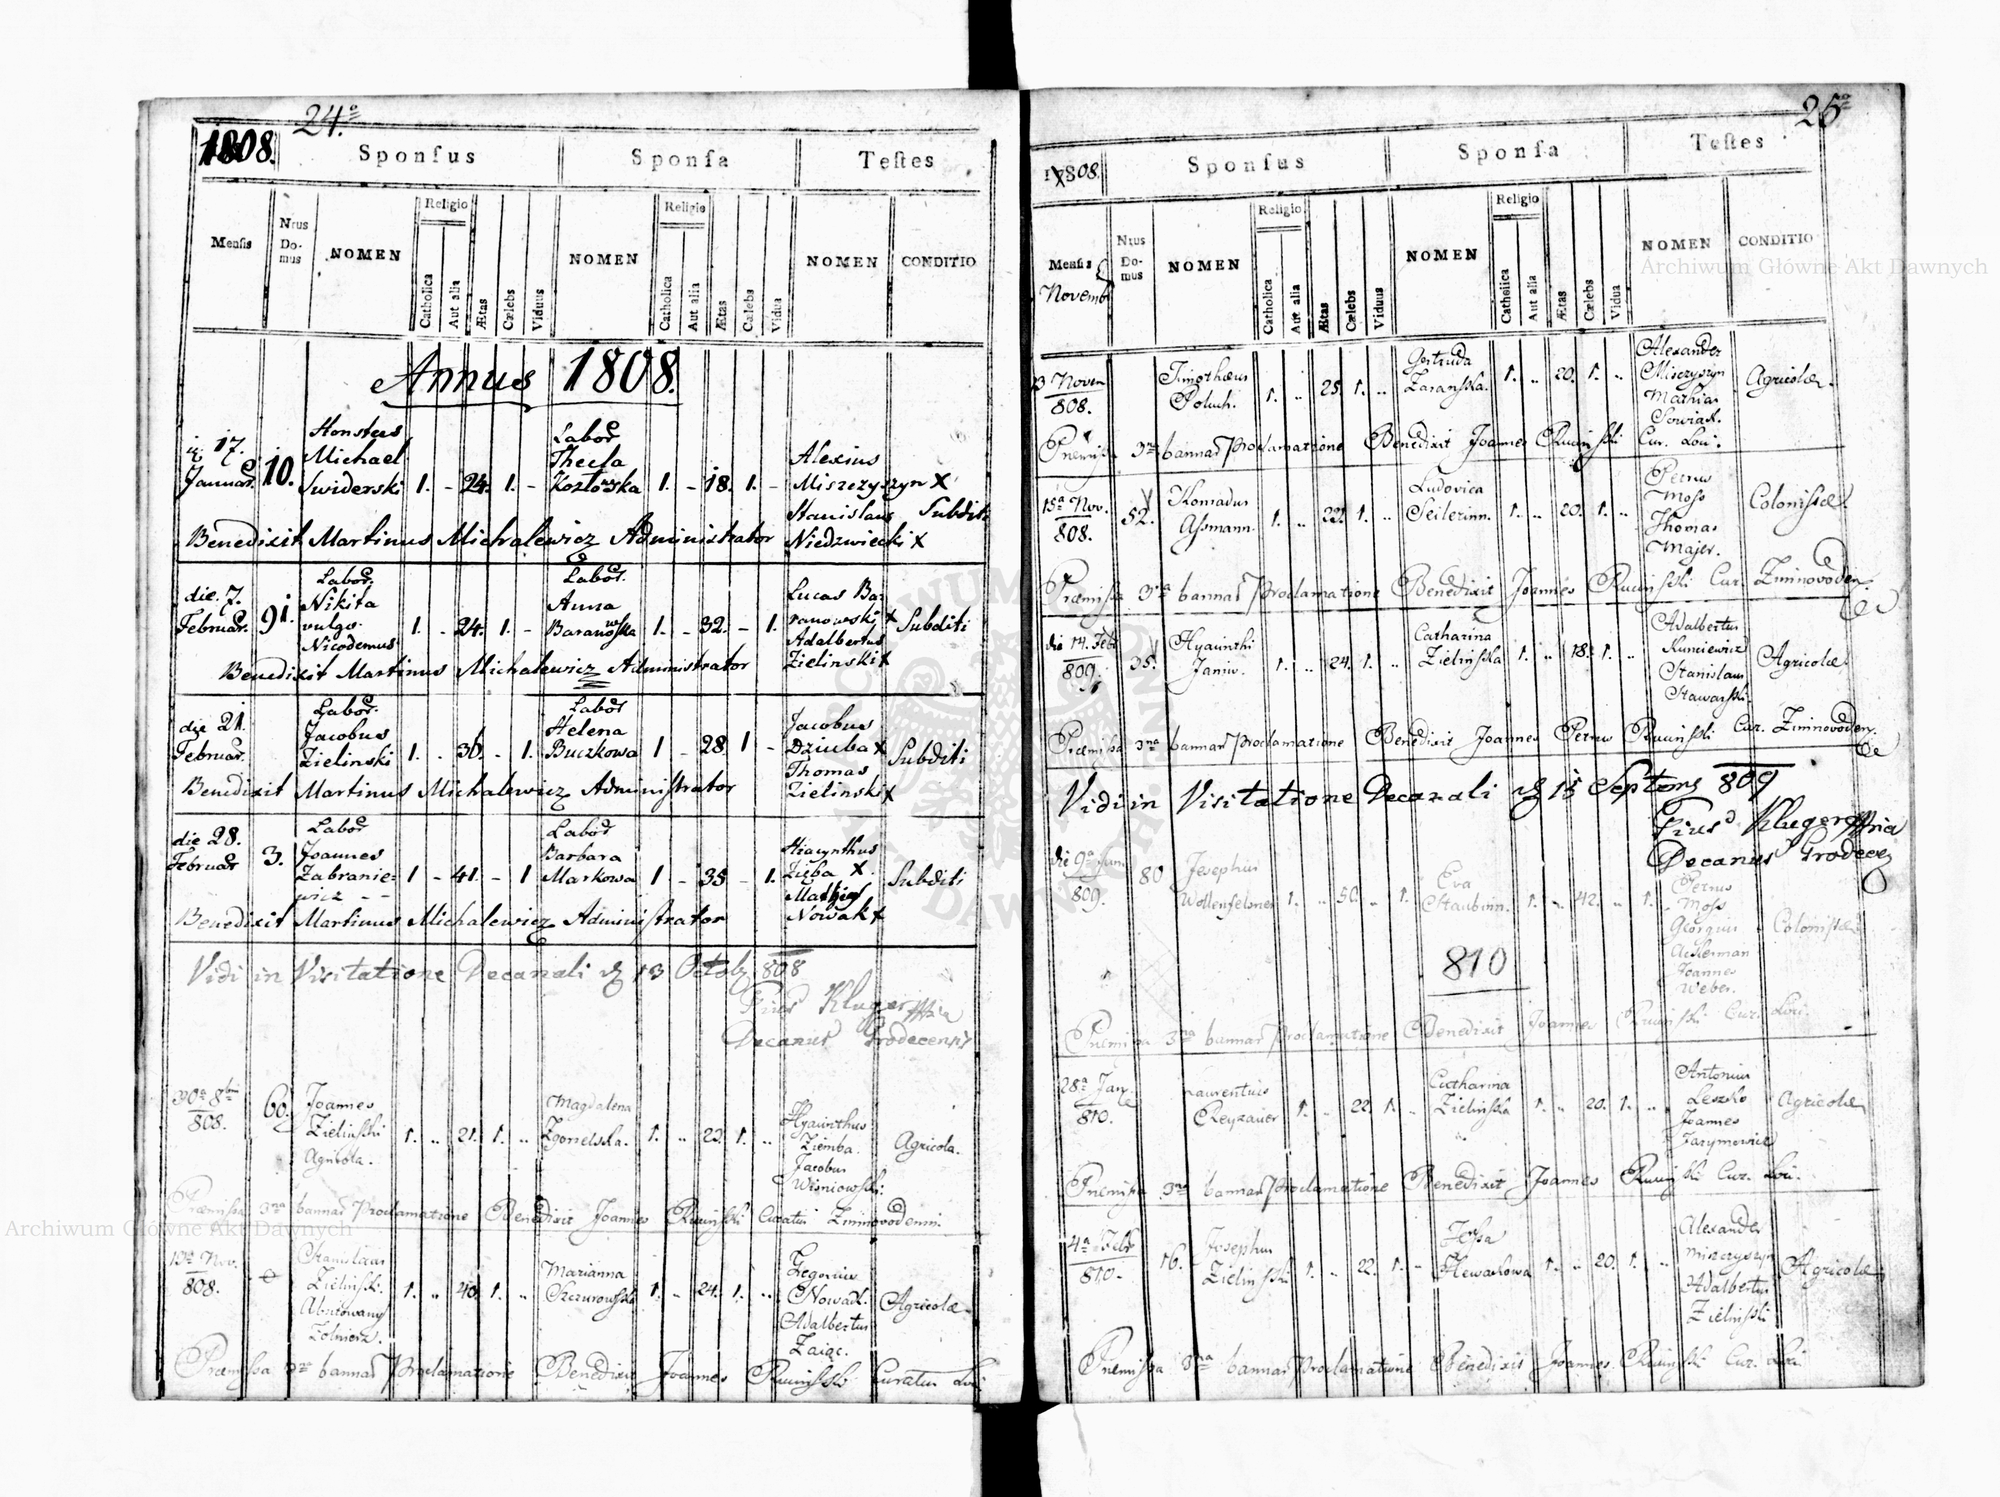 24.º
1808.
Sponsus
Sponsa
Testes
Mensis
Nrus Do-
mus
NOMEN
Religio
Catholica
Aut alia
Ætas
Cœlebs
Viduus
NOMEN
Religio
Catholica
Aut alia
Ætas
Cœlebs
Vidua
NOMEN
CONDITIO
Annus 1808.
17.
Januar.
10.
Honstus
Michael
Swiderski
1. - 24. 1. -
Labor
Thecla
Kozłowska
1. - 18. 1. -
Alexius
Miszczyszyn X
Stanislaus
Niedzwiecki X
Subditi
Benedixit Martinus Michalewicz Administrator
die 7.
Februar.
91.
Labor.
Nikita
vulgo
Nicodemus
1. - 24. 1. -
Labor.
Anna
Baranowska
1. - 32. - 1.
Lucas Ba-
ranowski X
Adalbertus
Zielinski X
Subditi
Benedixit Martinus Michalewicz Administrator
die 21.
Februar.
Labor.
Jacobus
Zielinski
1. - 36. - 1.
Labor
Helena
Buczkowa
1 - 28 1 -
Jacobus
Dziuba X
Thomas
Zielinski X
Subditi
Benedixit Martinus Michalewicz Administrator
die 28.
Februar
3.
Labor
Joannes
Zabranie-
wicz - -
1 - 41. - 1
Labor
Barbara
Markowa
1 - 35 - 1.
Hiacynthus
Zięba X.
Mathias
Nowak X
Subditi
Benedixit Martinus Michalewicz Administrator
Vidi in Visitatione Decanali 13 Octob 808
Pius Kluger
Decanus Grodecensis
30ª 8bris
808.
60.
Joannes
Zieliński
Agricola.
1. .. 21. 1. ..
Magdalena
Zgorzelska.
1. .. 23. 1. ..
Hyacinthus
Ziemba.
Jacobus
Wisniowski.
Agricola.
Præmissa 3na bannar Proclamatione Benedixit Joannes Ruciński Curatus Zimnovodenn.
13ª Nov.
808.
Stanislaus
Zieliński.
Abszytowany
Żołnierz.
1. .. 40. 1. ..
Marianna
Szczurowska
1. .. 24. 1. ..
Gregorius
Nowad.
Adalbertus
Zaiąc.
Agricolæ
Præmissa 3na bannar Proclamatione Benedixit Joannes Ruciński Curatus Loci
25º
1808.
Sponsus
Sponsa
Testes
Mensis
Novemb
Nrus
Do-
mus
NOMEN
Religio
Catholica
Aut alia
Ætas
Cœlebs
Viduus
NOMEN
Religio
Catholica
Aut alia
Ætas
Cœlebs
Vidua
NOMEN
CONDITIO
13 Novem
808.
Timothæus
1. .. 25. 1. ..
Gertruda
Zarańska.
1. .. 20. 1. ..
Alexander
Miszczyszyn
Mathias
Agricolæ.
Præmissa 3na bannar Proclamatione Benedixit Joannes Ruciński Cur. Loci.
15ª Nov.
808.
52.
Konradus
Assmann.
1. .. 23. 1. ..
Ludovica
Seilerinn.
1. .. 20. 1. ..
Petrus
Moss
Thomas
Majer.
Colonistæ.
Præmissa 3na bannar Proclamatione Benedixit Joannes Ruciński Cur. Zimnovoden.
die 14. Feb.
809.
35.
Hyacinthi
Janiw.
1. .. 24. 1. ..
Catharina
Zielińska
1. .. 18. 1. ..
Adalbertus
Kuncewicz
Stanislaus
Stawarski.
Agricolæ.
Præmissa 3na bannar Proclamatione Benedixit Joannes Petrus Ruciński Cur. Zimnovoden.
Vidi in Visitatione Decanali 15 Septem 809
Pius Kluger
Decanus Grodecen
die 9ª Jun.
809.
80
Josephus
Wollenfelsner
1. .. 50. .. 1.
Eva
Staubinn.
1. .. 42. .. 1.
Petrus
Moss
Georgius
Ackerman
Joannes
Weber.
Colonistæ
810
Præmissa 3na bannar Proclamatione Benedixit Joannes Ruciński Cur. Loci.
28ª Jan.
810.
Laurentius
Reyzauer
1. .. 22. 1. ..
Catharina
Zielińska
1. .. 20. 1. ..
Antonius
Leszko
Joannes
Jarymowicz
Agricolæ
Præmissa 3na bannar Proclamatione Benedixit Joannes Ruciński Cur. Loci.
4ª Febr
810.
16.
Josephus
Zieliński
1. .. 22. 1. ..
Zofia
Hlewackowa
1. .. 20. 1. ..
Alexander
Miszczyszyn
Adalbertus
Zieliński
Agricolæ
Præmissa 3na bannar Proclamatione Benedixit Joannes Ruciński Cur. Loci
Archiwum Główne Akt Dawnych
Archiwum Główne Akt Dawnych